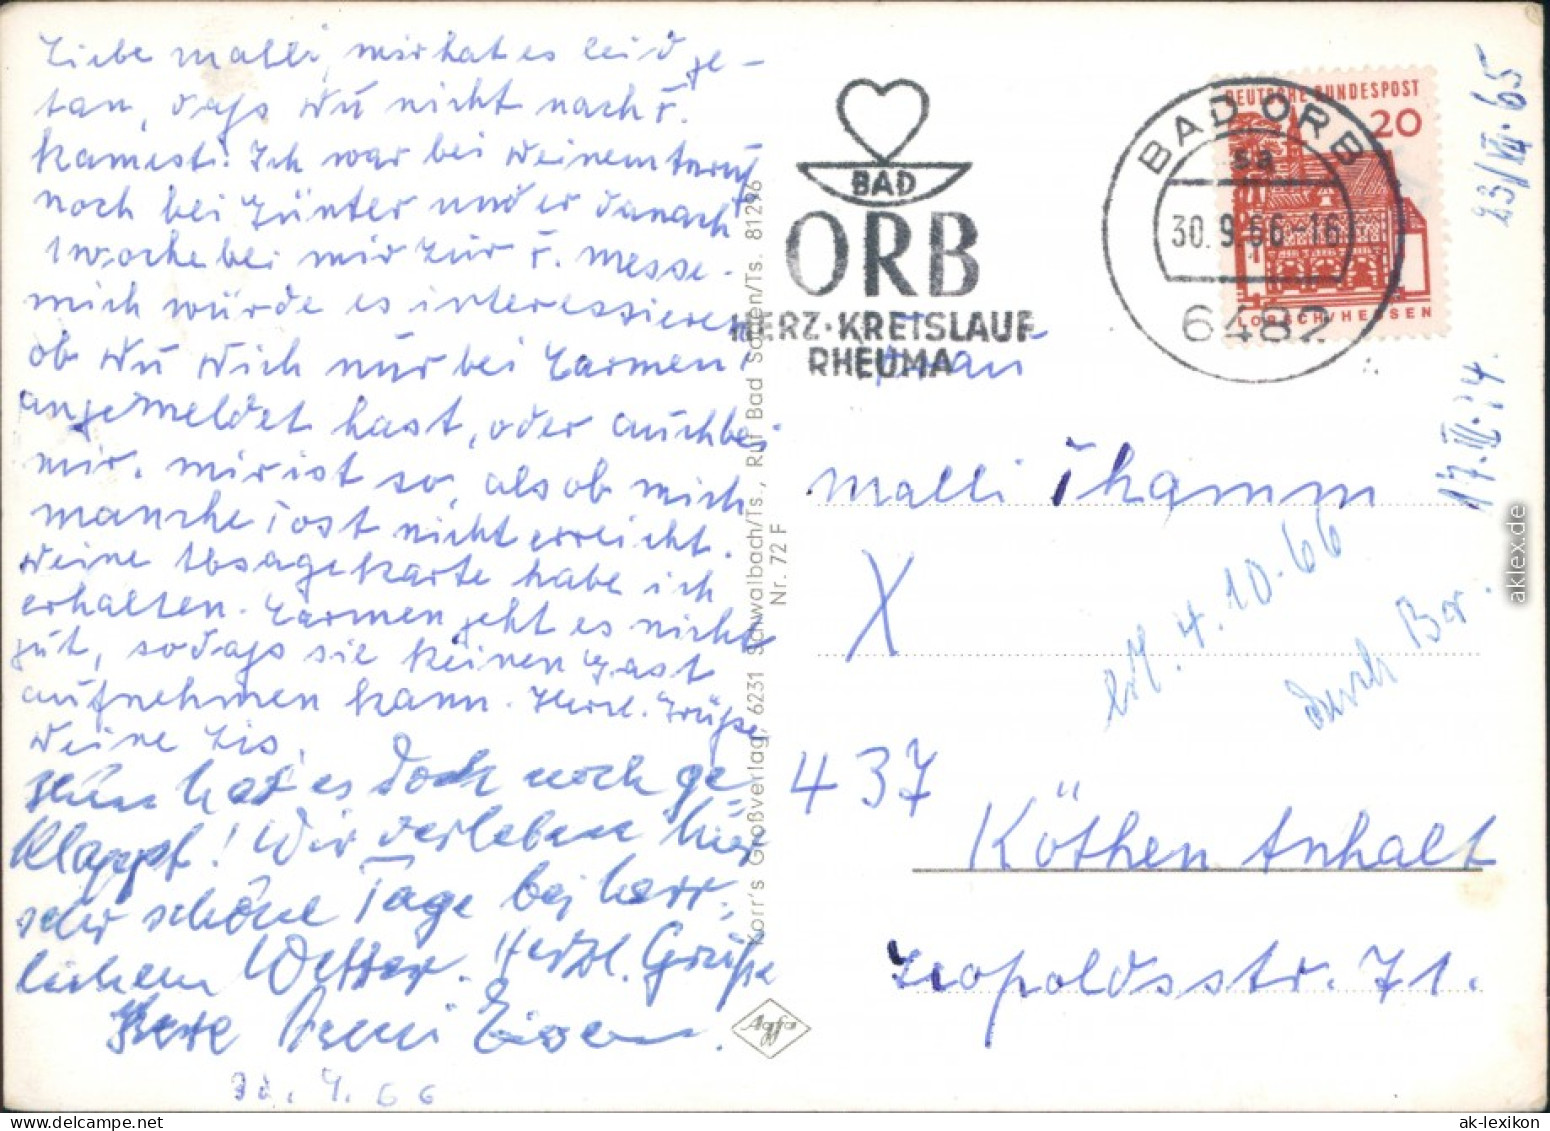 Liebe Malli, mir hat es leid ge-
tan, daß Du nicht nach F.
kamest. Ich war bei Deinem Anruf
noch bei Günter und er danach
1 Woche bei mir zur F. Messe.
Mich würde es interessieren
ob Du Dich nur bei Carmen
angemeldet hast, oder auch bei
mir. Mir ist so, als ob mich
manche Post nicht erreicht.
Deine Absagekarte habe ich
erhalten. Carmen geht es nicht
gut, sodaß sie keinen Gast
aufnehmen kann. Herzl. Grüße
Deine Lis.
Nun hat es doch noch ge
klappt! Wir verleben hier
sehr schöne Tage bei herr-
lichem Wetter. Herzl. Grüße
Ihre
30. 9. 66
Korr's Großverlag, 6231 Schwalbach/Ts., Ruf Bad Soden/Ts. 81296
Nr. 72 F
Agfa
BAD
ORB
HERZ·KREISLAUF
RHEUMA
BAD ORB
sa
30.9.66-16
6482
DEUTSCHE BUNDESPOST
20
LORSCH/HESSEN
23/VII.65
17.III.74.
Frau
Malli Thamm
X
erh. 4.10.66
durch Bar.
437
Köthen Anhalt
Leopoldsstr. 71.
aklex.de
ak-lexikon